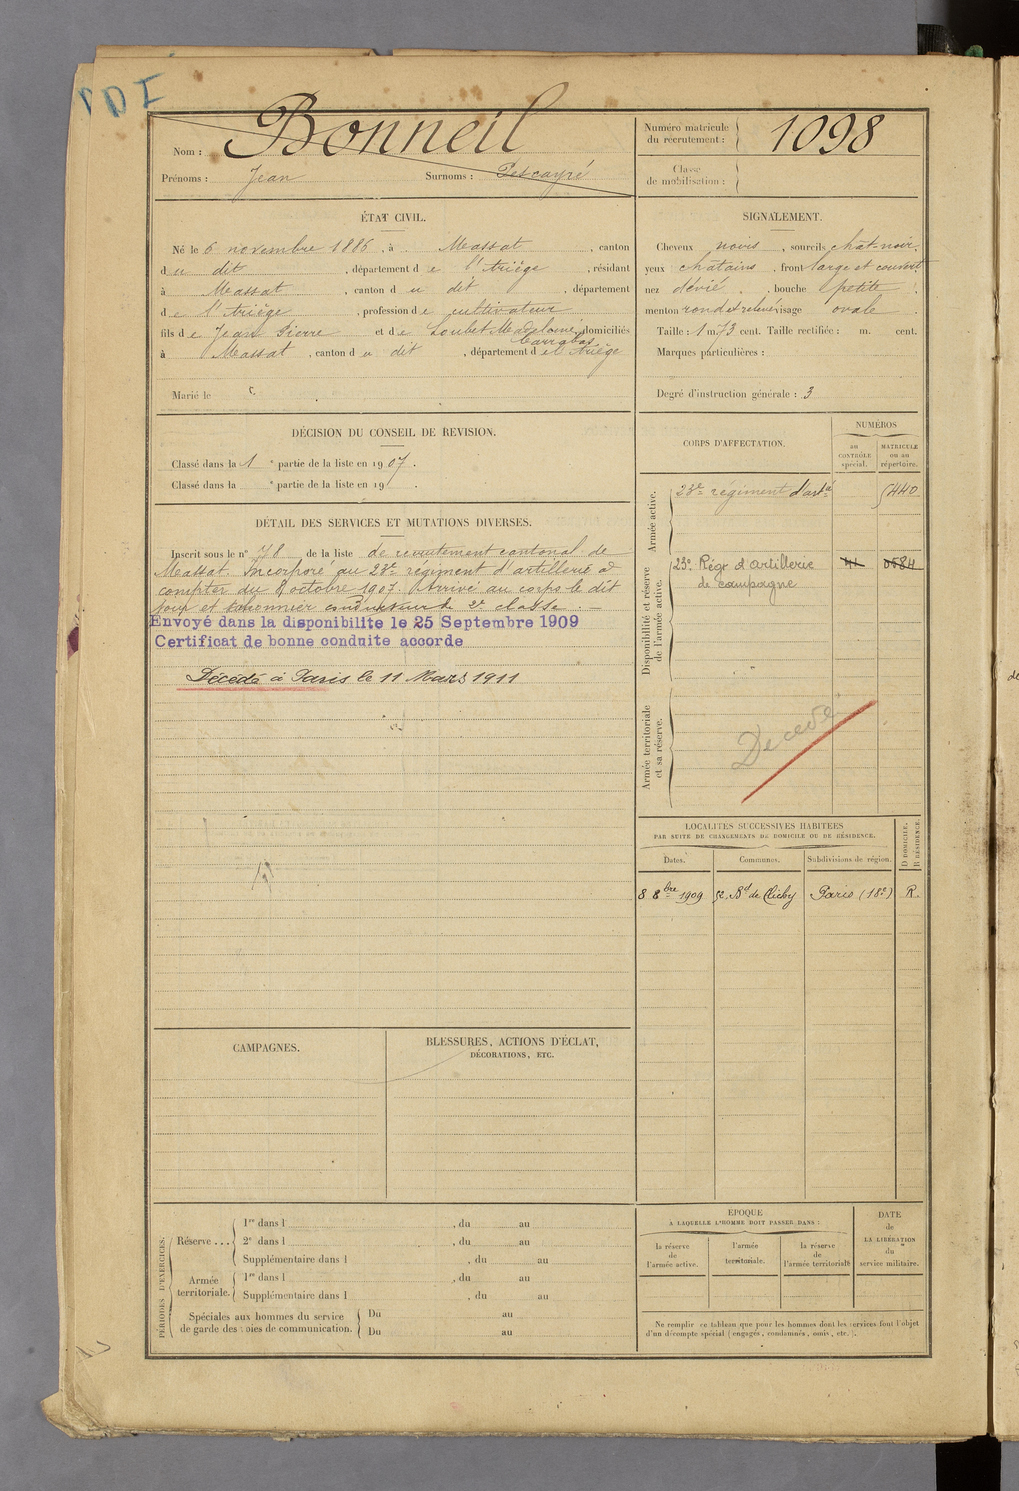 PDI
Nom : Bonneil
Prénoms : Jean Surnoms : Pescayré
Numéro matricule du recrutement : 1098
Classe de mobilisation :
ÉTAT CIVIL.
Né le 6 novembre 1886, à Massat, canton
du dit, département de l'Ariège, résidant
à Massat, canton du dit, département
de l'Ariège, profession de cultivateur
fils de Jean Pierre et de Loubet Madeleine, domiciliés
Carrabas
à Massat, canton du dit, département de l'Ariège
Marié le
SIGNALEMENT.
Cheveux noirs, sourcils chât-noir,
yeux châtains, front large et couvert,
nez dévié, bouche petite,
menton rond et relevé visage ovale.
Taille : 1 m. 73 cent. Taille rectifiée : m. cent.
Marques particulières :
Degré d'instruction générale : 3
DÉCISION DU CONSEIL DE REVISION.
Classé dans la 1e partie de la liste en 1907.
Classé dans la e partie de la liste en 19 .
DÉTAIL DES SERVICES ET MUTATIONS DIVERSES.
Inscrit sous le n° 78 de la liste de recrutement cantonal de
Massat. Incorporé au 23e régiment d'artillerie à
compter du 8 octobre 1907. Arrivé au corps le dit
jour et canonnier conducteur de 2e classe.
Envoyé dans la disponibilite le 25 Septembre 1909
Certificat de bonne conduite accorde
Décédé à Paris le 11 Mars 1911
CORPS D'AFFECTATION.
NUMÉROS
au CONTRÔLE spécial.
MATRICULE ou au répertoire.
Armée active.
23e régiment d'artie 5440
Disponibilité et réserve de l'armée active.
23e Régt d'artillerie 0584
de campagne
Armée territoriale et sa réserve.
Décédé
LOCALITÉS SUCCESSIVES HABITÉES
PAR SUITE DE CHANGEMENTS DE DOMICILE OU DE RÉSIDENCE.
Dates. Communes. Subdivisions de région. D DOMICILE. R RÉSIDENCE.
8 8bre 1909 Bd de Clichy Paris (18e) R.
CAMPAGNES.
BLESSURES, ACTIONS D'ÉCLAT,
DÉCORATIONS, ETC.
PÉRIODES D'EXERCICES.
Réserve ...
1re dans l , du au
2e dans l , du au
Supplémentaire dans l , du au
Armée territoriale.
1re dans l , du au
Supplémentaire dans l , du au
Spéciales aux hommes du service
de garde des voies de communication.
Du au
Du au
EPOQUE
A LAQUELLE L'HOMME DOIT PASSER DANS :
la réserve de l'armée active.
l'armée territoriale.
la réserve de l'armée territoriale
DATE
de
LA LIBÉRATION
du
service militaire.
Ne remplir ce tableau que pour les hommes dont les services font l'objet
d'un décompte spécial (engagés, condamnés, omis, etc.).